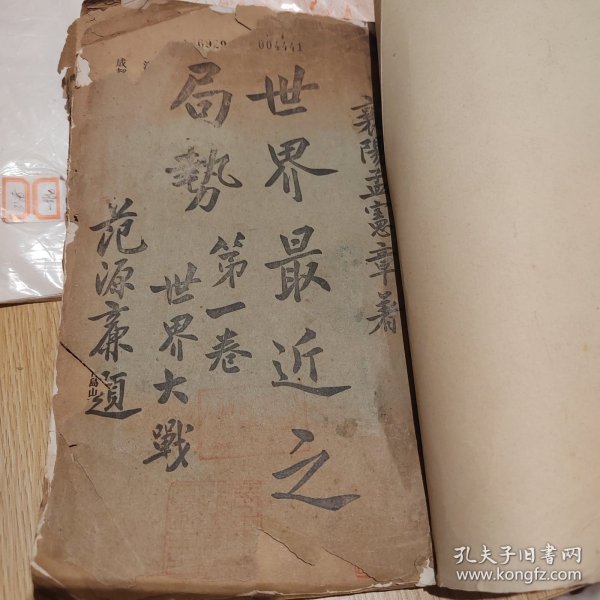 襄陽孟憲章著
世界最近之
局勢
第一卷
世界大戰
范源廉題
004441
孔夫子旧书网
www.kongfz.com